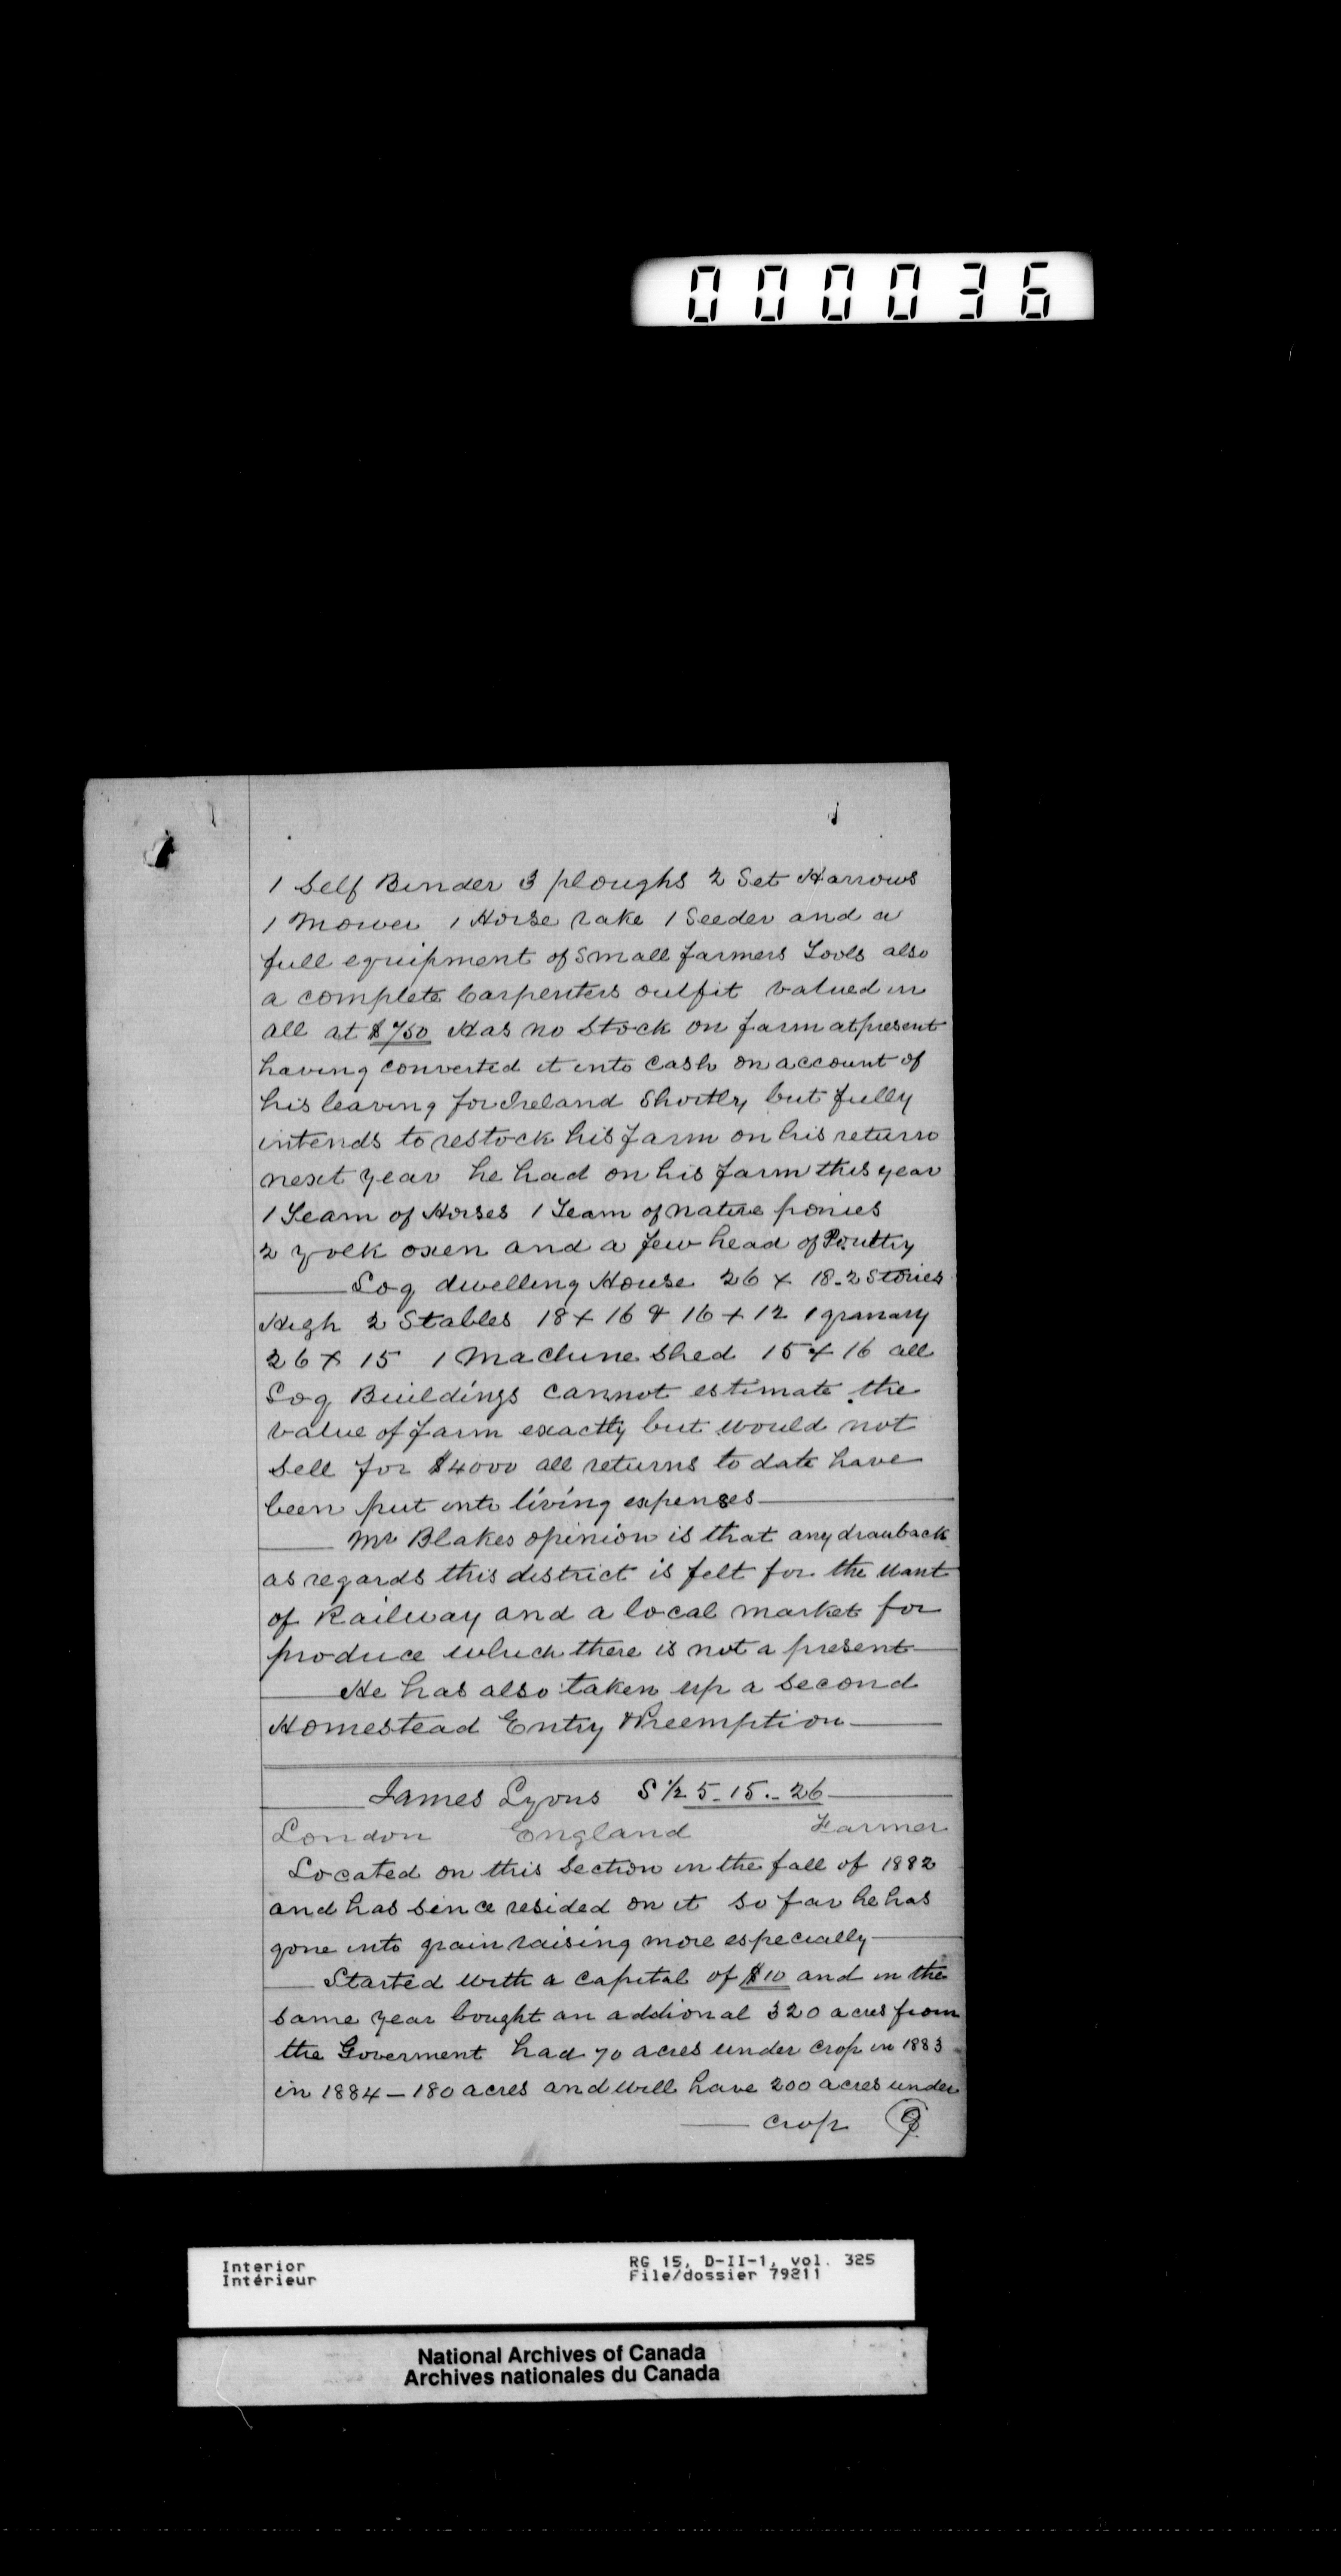 000036
1 Self Binder 3 ploughs 2 Set Harrows
1 Mower 1 Horse rake 1 Seeder and a
full equipment of Small farmers Tools also
a complete Carpenters outfit valued in
all at $750 Has no Stock on farm at present
having converted it into cash on account of
his leaving for Ireland Shortly but fully
intends to restock his farm on his return
next year he had on his farm this year
1 Team of Horses 1 Team of native ponies
2 yolk oxen and a few head of Poultry
Log dwelling House 26 x 18 - 2 Stories
High 2 Stables 18 x 16 & 16 x 12 1 granary
26 x 15 1 Machine Shed 15 x 16 all
Log Buildings cannot estimate the
value of farm exactly but would not
Sell for $4000 all returns to date have
been put into living expenses
Mr Blakes opinion is that any drauback
as regards this district is felt for the want
of Railway and a local market for
produce which there is not a present
He has also taken up a second
Homestead Entry & Preemption
James Lyons S 1/2 5 - 15 - 26
London England Farmer
Located on this Section in the fall of 1882
and has since resided on it so far he has
gone into grain raising more especially
Started with a capital of $10 and in the
same year bought an addional 320 acres from
the Goverment had 70 acres under crop in 1883
in 1884 - 180 acres and will have 200 acres under
crop
Interior
Intérieur
RG 15, D-II-1, vol. 325
File/dossier 79211
National Archives of Canada
Archives nationales du Canada